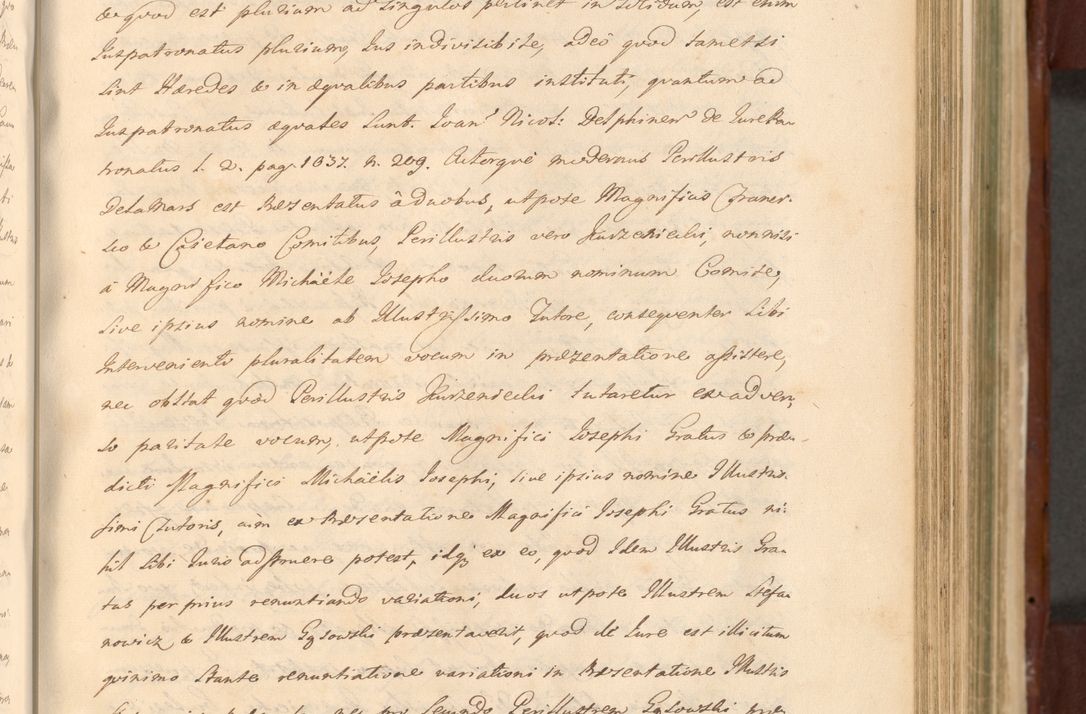 & quod est plurium ad singulos pertinet in solidum, est enim
Juspatronatus plurium, Jus indivisibile, adeò quod tametsi
sint Hæredes & in æqualibus partibus instituti, quantum ad
Juspatronatus æquales sunt. Joan: Nicol: Delphinen de Jurepa-
tronatus L. 2. pag. 1037. n. 209. Actorque modernus Perillustris
DelaMars est Præsentatus â duobus, utpote Magnifius Franci-
sco & Caietano Comitibus, Perillustris vero Kurzeniecki, nonnisi
á Magnifico Michaële Josepho duorum nominum Comite,
sive ipsius nomine ab Illustrissimo Tutore, consequenter sibi
Intervenienti pluralitatem vocum in præzentatione assistere,
nec obstat quod Perillustris Kurzeniecki tutaretur ex adver-
so paritate vocum, utpote Magnifici Josephi Gratus & præ-
dicti Magnifici Michaëlis Josephi, sive ipsius nomine Illustris-
simi Tutoris, cùm ex Præsentatione Magnifici Josephi Gratus ni-
hil sibi Juris adstruere potest, idq; ex eo, quod Idem Illustris Gra-
tus per prius renuntiando variationi, duos utpote Illustrem Stefa-
nowicz & Illustrem Gąsowski præzentaverit, quod de Jure est illicitum
quinimo stante renuntiatione variationi in Præsentatione Illustris
secundo Perillustrem Gąsowski